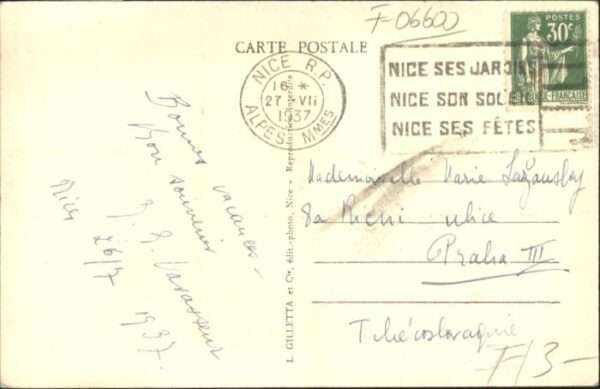 F-06600
CARTE POSTALE
NICE R.P.
16 *
27 - VII
1937
ALPES MMES
NICE SES JARDINS
NICE SON SOLEIL
NICE SES FÊTES
POSTES
30c
FRANÇAISE
Bonnes vacances -
Bon souvenir
Vavasseur
Nice 26/7 1937.
L. GILLETTA et Cie, édit.-photo, Nice - Reproduction interdite
Mademoiselle Marie Lažanský
ulice
Praha III
Tchécoslovaquie
F/3-